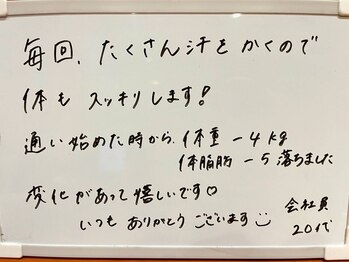 毎回、たくさん汗をかくので
体も スッキリします!
通い始めた時から、体重 -4kg
体脂肪 -5 落ちました
変化があって嬉しいです♡
いつも ありがとう ございます
会社員
20代